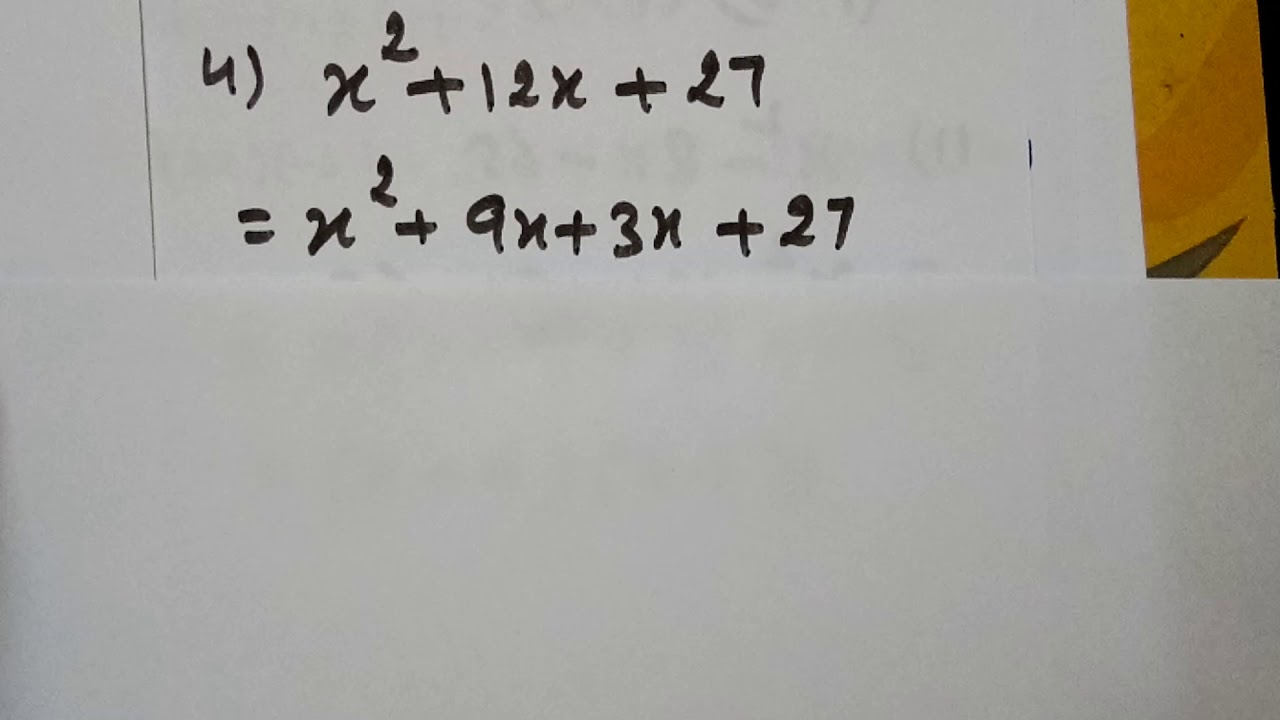 4) x² + 12x + 27
= x² + 9x + 3x + 27